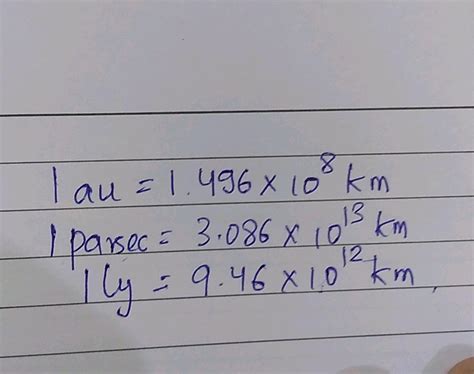 1 au = 1.496 × 10⁸ km
1 parsec = 3.086 × 10¹³ km
1 ly = 9.46 × 10¹² km